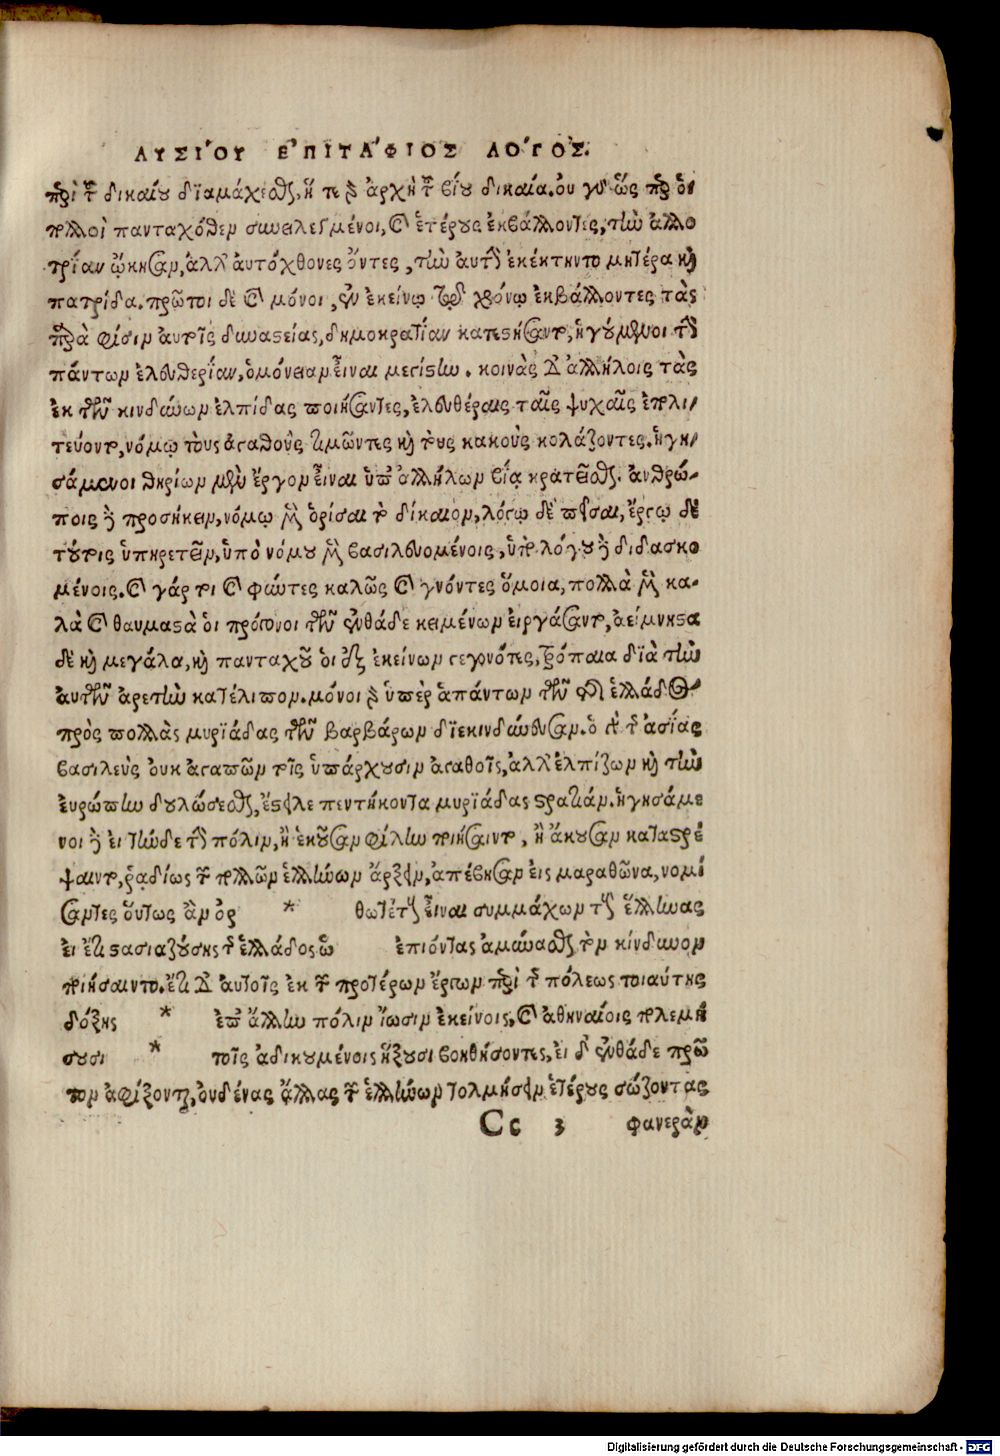 ΛΥΣΙ´ΟΥ ΕʼΠΙΤΑ´ΦΙΟΣ ΛΟ´ΓΟΣ.
περὶ τοῦ δικαίου διαμάχεσθαι, ἥ τε γὰρ ἀρχὴ τοῦ βίου δικαία. οὐ γὰρ ὥσπερ ὁι
πολλοὶ πανταχόθεν συνειλεγμένοι, καὶ ἑτέρους ἐκβάλλοντες, τὴν ἀλλο
τρίαν ᾤκησαν, ἀλλ' ἀυτόχθονες ὄντες, τὴν αυτὴν ἐκέκτηντο μητέρα καὶ
πατρίδα. πρῶτοι δὲ καὶ μόνοι, ἐν ἐκείνῳ τῷ χρόνῳ ἐκβάλλοντες τὰς
παρὰ φίσιν ἀυτοῖς δυναστείας, δημοκρατίαν κατεστήσαντο, ἡγούμενοι τὴν
πάντων ἐλευθερίαν, ὁμόνειαν εἶναι μεγίστην. κοινὰς δ' ἀλλήλοις τὰς
ἐκ τῶν κινδύνων ἐλπίδας ποιήσαντες, ἐλευθέραις ταῖς ψυχαῖς ἐπολι/
τεύοντο, νόμῳ τοὺς ἀγαθοὺς τιμῶντες καὶ τοὺς κακοὺς κολάζοντες. ἡγη/
σάμενοι θηρίων μὲν ἔργον εἶναι ὑπ' ἀλλήλων βίᾳ κρατεῖσθαι. ἀνθρώ-
ποις δὲ προσήκειν, νόμῳ μὲν ὁρίσαι τὸ δίκαιον, λόγῳ δὲ πεῖσαι, ἔργῳ δὲ
τούτοις ὑπηρετεῖν, ὑπὸ νόμου μὲν βασιλευομένοις, ὑπὸ λόγου δὲ διδασκο
μένοις. καὶ γάρ τοι καὶ φύντες καλῶς καὶ γνόντες ὅμοια, πολλὰ μὲν κα-
λὰ καὶ θαυμαστὰ ὁι πρόγονοι τῶν ἐνθάδε κειμένων ἐιργάσαντο, ἀείμνηστα
δὲ καὶ μεγάλα, καὶ πανταχοῦ ὁι ἐξ ἐκείνων γεγονότες, τρόπαια διὰ τὴν
ἁυτῶν ἀρετὴν κατέλιπον. μόνοι γὰρ ὑπὲρ ἁπάντων τῶν τῆς ἑλλάδος
πρὸς πολλὰς μυριάδας τῶν βαρβάρων διεκινδύνευσαν. ὁ γὰρ τῆς ἀσίας
βασιλεὺς ὀυκ ἀγαπῶν τοῖς ὑπάρχουσιν ἀγαθοῖς, ἀλλ' ἐλπίζων καὶ τὴν
ἐυρώπην δουλώσεσθαι, ἔστειλε πεντήκοντα μυριάδας στρατιάν. ἡγησάμε
νοι δὲ ἐι τήνδε τὴν πόλιν, ἢ ἑκοῦσαν φίλην ποιήσαιντο, ἢ ἄκουσαν καταστρέ
ψαιντο, ῥᾳδίως τῶν πολλῶν ἑλλήνων ἄρξειν, ἀπέβησαν ἐις μαραθῶνα, νομί
σαντες ὅυτως ἂν ὀρ * θωτέτους εἶναι συμμάχων τοὺς ἕλληνας
ἐι ἔτι στασιαζούσης τῆς ἑλλάδος ὢ ἐπιόντας ἀμύνασθαι τὸν κίνδυνον
ποιήσαιντο. ἔτι δ' ἀυτοῖς ἐκ τῶν προτέρων ἔργων περὶ τῆς πόλεως τοιαύτης
δόξης * ἐπ' ἄλλην πόλιν ἴωσιν ἐκείνοις, καὶ ἀθηναίοις πολεμή
σουσι * τοῖς ἀδικουμένοις ἥξουσι βοηθήσοντες, ἐι δ' ἐνθάδε πρῶ
τον ἀφίξονται, ὀυδένας ἄλλας τῶν ἑλλήνων τολμήσειν ἑτέρους σώζοντας
Cc 3 φανερὰν
Digitalisierung gefördert durch die Deutsche Forschungsgemeinschaft - DFG